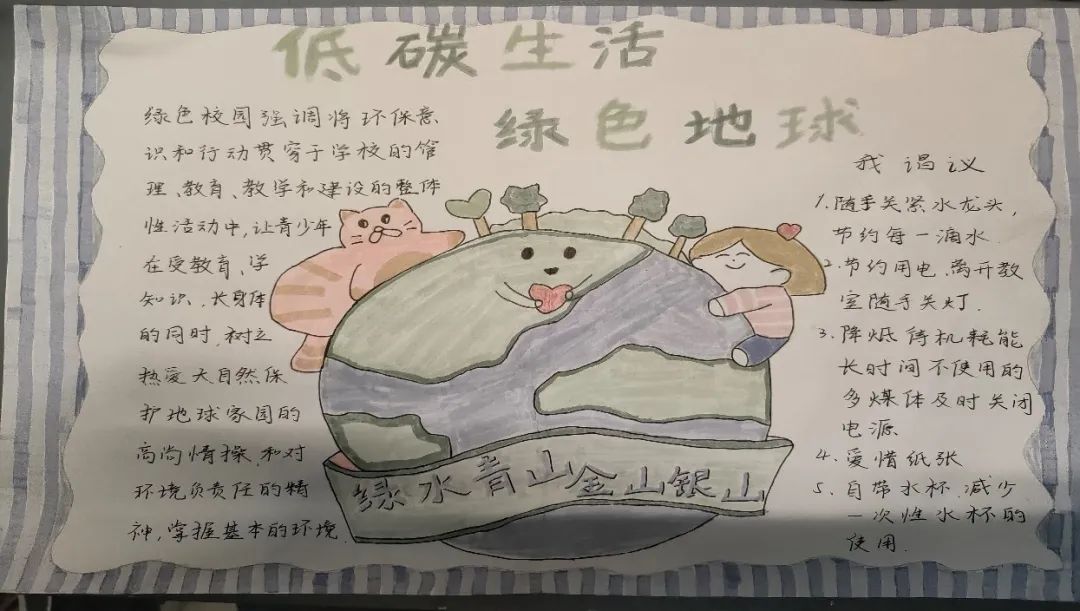 低碳生活
绿色地球
绿色校园强调将环保意
识和行动贯穿于学校的管
理、教育、教学和建设的整体
性活动中,让青少年
在受教育、学
知识、长身体
的同时,树立
热爱大自然保
护地球家园的
高尚情操,和对
环境负责任的精
神,掌握基本的环境
绿水青山金山银山
我倡议
1.随手关紧水龙头,
节约每一滴水.
2.节约用电、离开教
室随手关灯.
3.降低待机耗能
长时间不使用的
多媒体及时关闭
电源.
4.爱惜纸张
5.自带水杯.减少
一次性水杯的
使用.